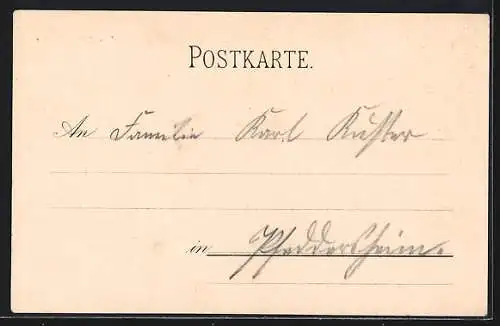 POSTKARTE.
An Familie Karl Küster
in Pfeddersheim.